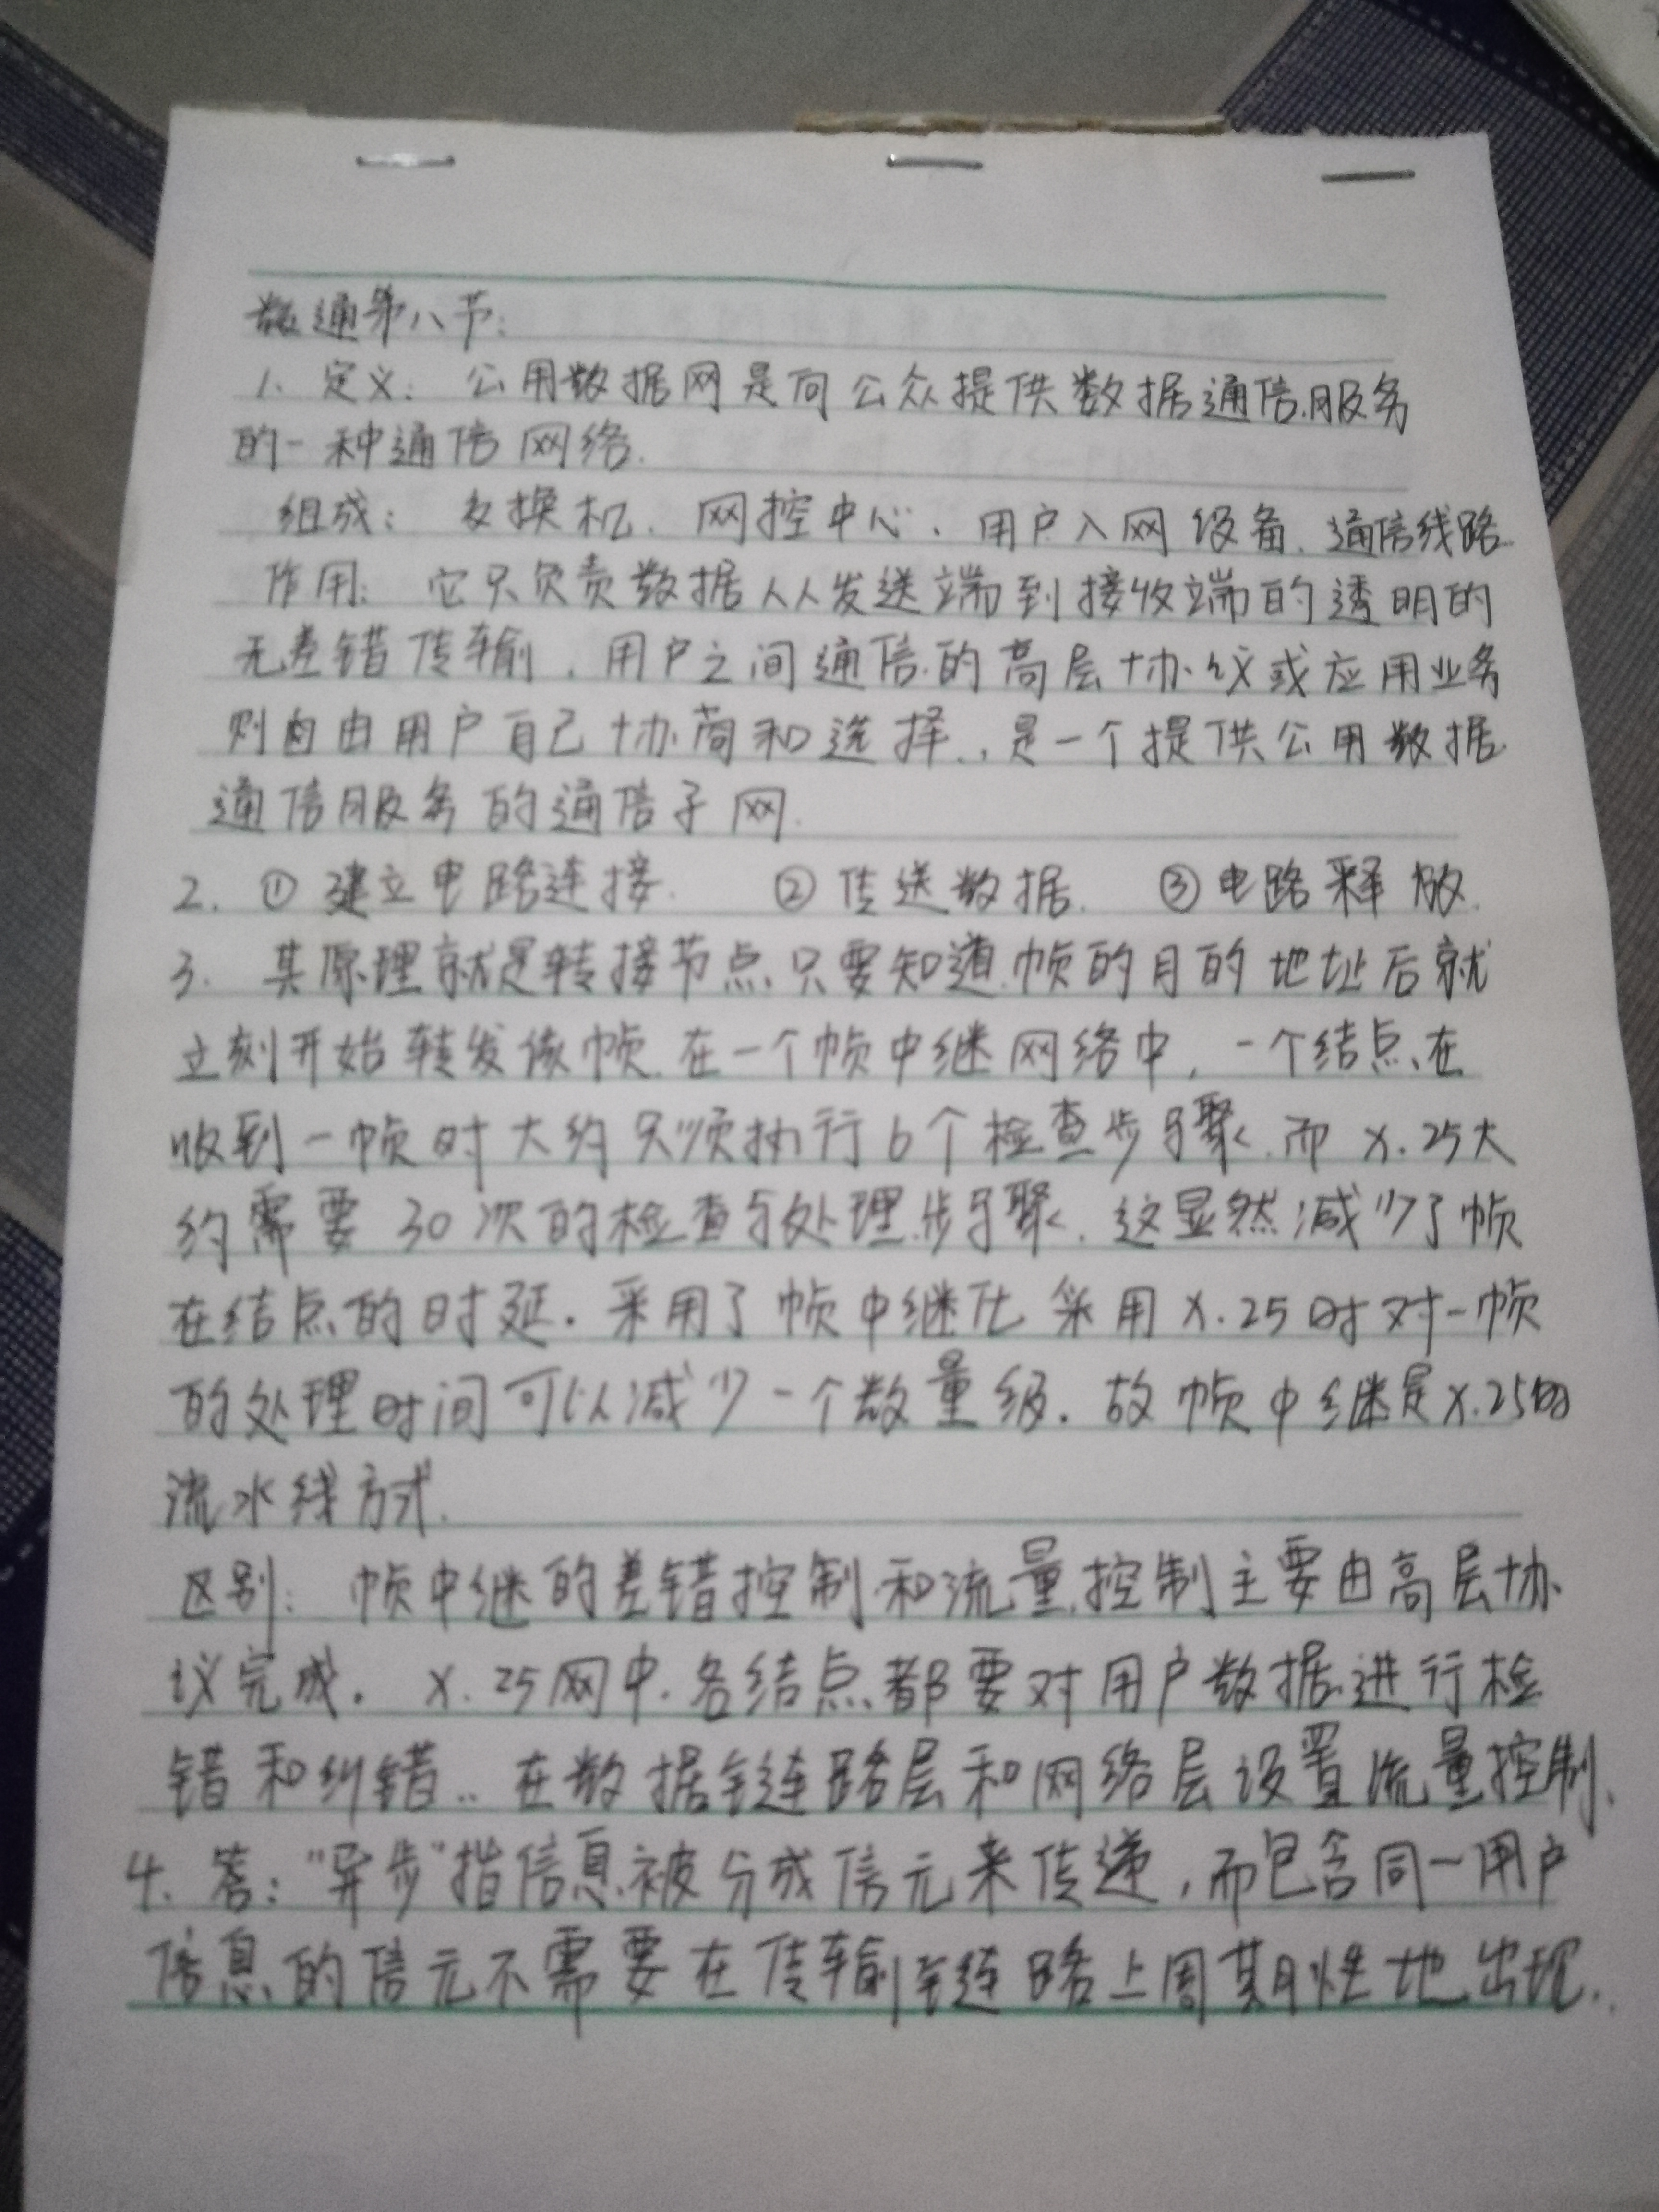 数通第八节:
1. 定义: 公用数据网是向公众提供数据通信服务
的一种通信网络.
组成: 交换机、网控中心、用户入网设备、通信线路.
作用: 它只负责数据从发送端到接收端的透明的
无差错传输,用户之间通信的高层协议或应用业务
则自由用户自己协商和选择.,是一个提供公用数据
通信服务的通信子网.
2. ① 建立电路连接. ② 传送数据. ③ 电路释放.
3. 其原理就是转接节点只要知道帧的目的地址后就
立刻开始转发该帧.在一个帧中继网络中,一个结点在
收到一帧时大约只须执行6个检查步骤.而X.25大
约需要30次的检查与处理步骤.这显然减少了帧
在结点的时延.采用了帧中继比采用X.25时对一帧
的处理时间可以减少一个数量级.故帧中继是X.25的
流水线方式.
区别: 帧中继的差错控制和流量控制主要由高层协
议完成. X.25网中.各结点都要对用户数据进行检
错和纠错..在数据链路层和网络层设置流量控制.
4. 答:"异步"指信息被分成信元来传递,而包含同一用户
信息的信元不需要在传输链路上周期性地出现..